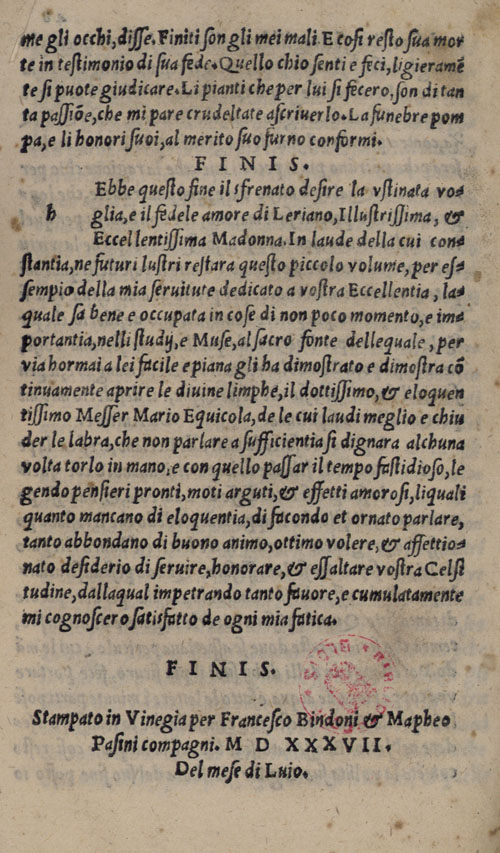 me gli occhi, disse. Finiti son gli mei mali. E cosi resto sua mor-
te in testimonio di sua fede. Quello chio senti e feci, ligieramē
te si puote giudicare. Li pianti che per lui si fecero, son di tan
ta passiōe, che mi pare crudeltate ascriuerlo. La funebre pom
pa, e li honori suoi, al merito suo furno conformi.
FINIS.
Ebbe questo fine il sfrenato desire la vstinata vo-
h glia, e il fedele amore di Leriano, Illustrissima, &
Eccellentissima Madonna. In laude della cui con-
stantia, ne futuri lustri restara questo piccolo volume, per es-
sempio della mia seruitute dedicato a vostra Eccellentia, la-
quale sa bene e occupata in cose di non poco momento, e im-
portantia, nelli study, e Muse, al sacro fonte dellequale, per
via hormai a lei facile e piana gli ha dimostrato e dimostra cō
tinuamente aprire le diuine limphe, il dottissimo, & eloquen
tissimo Messer Mario Equicola, de le cui laudi meglio e chiu
der le labra, che non parlare a sufficientia si dignara alchuna
volta torlo in mano, e con quello passar il tempo fastidioso, le
gendo pensieri pronti, moti arguti, & effetti amorosi, liquali
quanto mancano di eloquentia, di facondo et ornato parlare,
tanto abbondano di buono animo, ottimo volere, & affettio-
nato desiderio di seruire, honorare, & essaltare vostra Celsi
tudine, dallaqual impetrando tanto fauore, e cumulatamente
mi cognoscero satisfatto de ogni mia fatica.
FINIS.
Stampato in Vinegia per Francesco Bindoni & Mapheo
Pasini compagni. M D XXXVII.
Del mese di Luio.